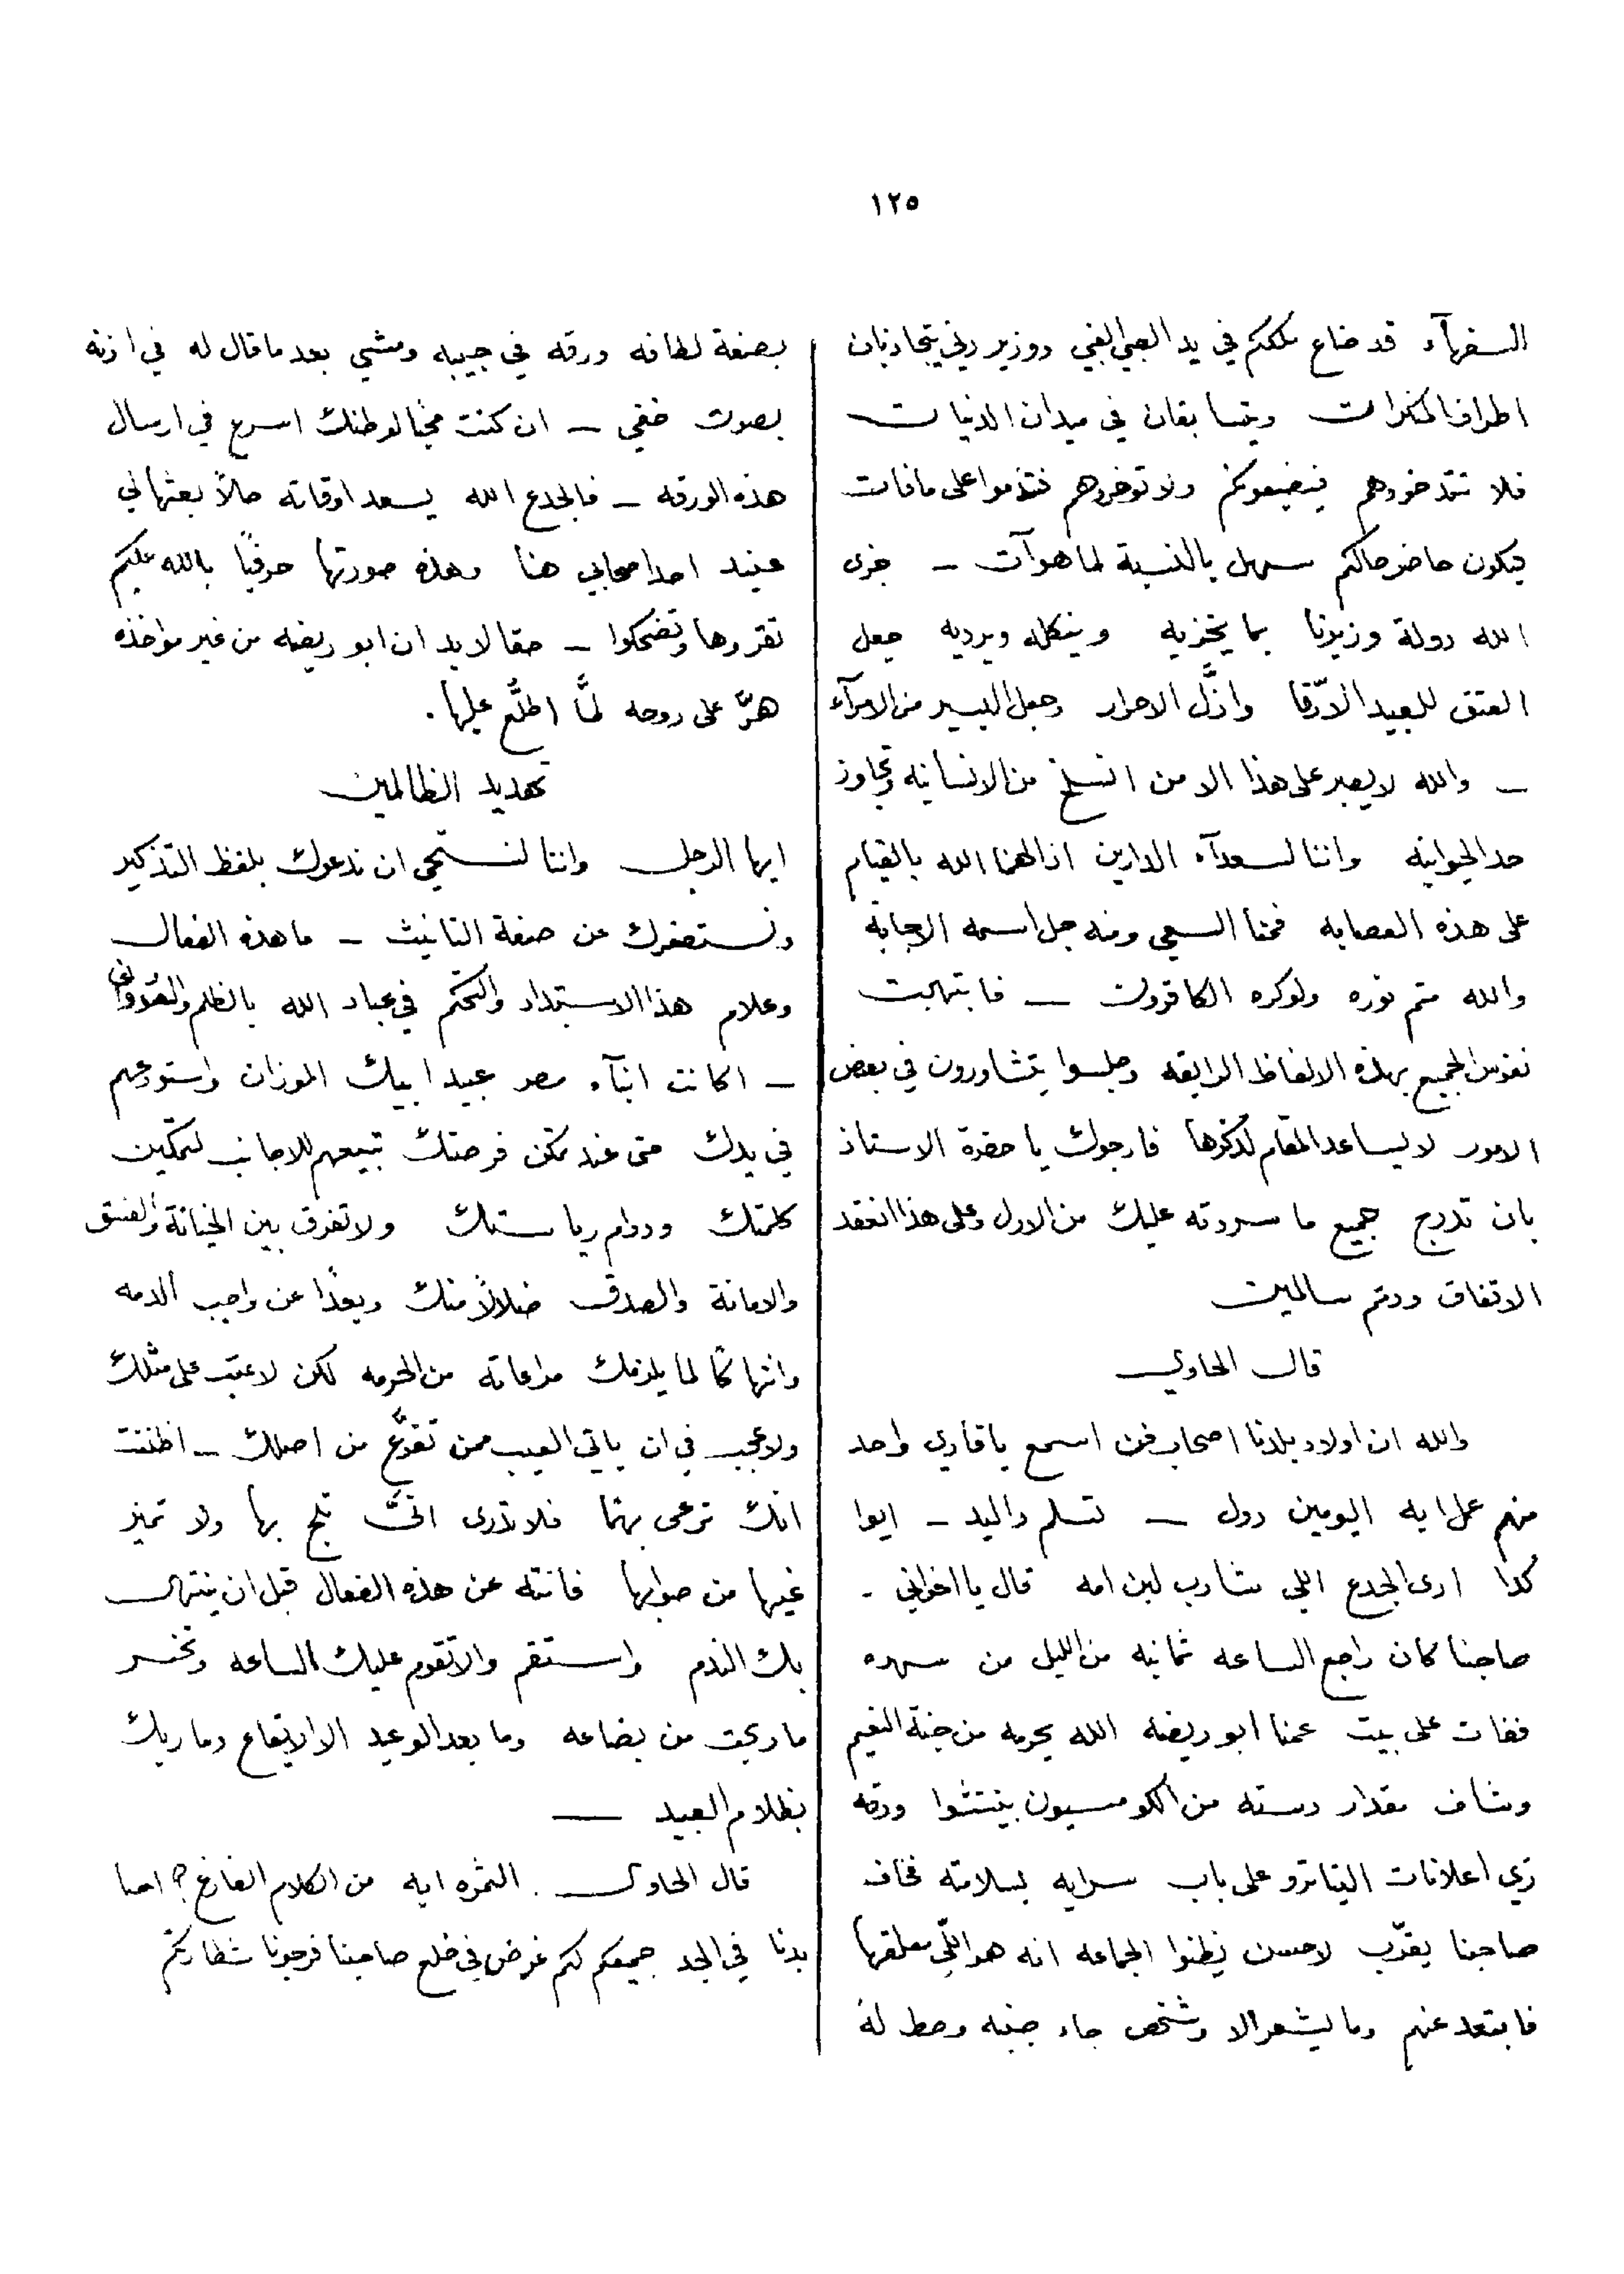 ١٢٥
السفهآء قد ضاع ملككم في يد الصبي الغبي ووزير دني يتجاذبان
اطراف المنكرات ويتسابقان في ميدان الدنيات
فلا تتخذوهم فيضيعونكم ولا توخروهم فتندموا على مافات
فيكون حاضر حالكم سهل بالنسبة لما هوآت ـ جزى
الله دولة وزيرنا بما يخزيه وينكله ويرديه جعل
العتق للعبيد الارّقا واذلَّ الاحرار وجعل اليسير من الامرآء
ـ والله لا يصبر على هذا الا من انسلخ من الانسانيه وتجاوز
حد الحيوانيه واننا لسعدآء الدارين اذا الهمنا الله بالقيام
على هذه العصابه فمنا السعي ومنه جل اسمه الاجابة
والله متم نوره ولو كره الكافرون ــ فابتهجت
نفوس الجميع بهذه الالفاظ الرايقه وجلسوا يتشاورون في بعض
الامور لا يساعد المقام لذكرها فارجوك يا حضرة الاستاذ
بان تدرج جميع ما سردته عليك من الاول وعلى هذا انعقد
الاتفاق ودمتم سالمين
قال الحاوي
والله ان اولاد بلدنا اصحاب فن اسمع يا قاري واحد
منهم عمل ايه اليومين دول ــ تسلم واليد ـ ايوا
كدا ادى الجدع اللي شارب لبن امه قال يا اخواني ـ
صاحبنا كان راجع الساعه ثمانيه من الليل من سهره
ففات على بيت عمنا ابو ريضه الله يحرمه من جنة النعيم
وشاف مقدار دسته من الكومسيون بينتشوا ورقه
زي اعلانات التياترو على باب سرايه بسلامته فخاف
صاحبنا يقرّب لاحسن يظنوا الجماعه انه هو اللّي معلقها
فابتعد عنهم وما يشعر الا وشخص جاء جنبه وحط لهُ
بصنعة لطافه ورقه في جيبه ومشي بعد ما قال له في اذنه
بصوت خفي ـ ان كنت محبًا لوطنك اسرع في ارسال
هذه الورقه ـ فالجدع الله يسعد اوقاته حالاً بعثها لي
عند احد اصحابي هنا وهذه صورتها حرفيًا بالله عليكم
تقروها وتضحكوا ـ حقا لا بد ان ابو ريضه من غير مواخذه
هرّ على روحه لمَّا اطلّع عليها .
تهديد الظالمين
ايها الرجل واننا لنستحي ان ندعوك بلفظ التذكير
ونستصغرك عن صنعة التانيث ـ ما هذه الفعال
وعلام هذا الاستبداد والتحكم في عباد الله بالظلم والعدوان
ـ اكانت ابنآء مصر عبيد ابيك الموزان واستودعهم
في يدك حتى عند تمكن فرصتك تبيعهم للاجانب لتمكين
كلمتك ودوام رياستك ولا تفرق بين الخيانة والفسق
والامانة والصدق ضلالاً منك وبعدًا عن واجب الذمه
وانتهاكًا لما يلزمك مراعاته من الحرمه لكن لا عتب على مثلك
ولا عجب في ان ياتي العيب ممن تفرّع من اصلك ـ اظننت
انك ترعى بهمًا فلا تدرى انّى تلج بها ولا تميز
غيها من صوابها فانته عن هذه الفعال قبل ان ينتهى
بك الندم واستقم والا تقوم عليك الساعه وتخسر
ما ربحت من بضاعه وما بعد الوعيد الا الايقاع وما ربك
بظلام العبيد ــ
قال الحاوى . الثمره ايه من الكلام الفارغ؟ احنا
بدنا في الجد جميعكم لكم غرض في خلع صاحبنا فرجونا شطارتكم